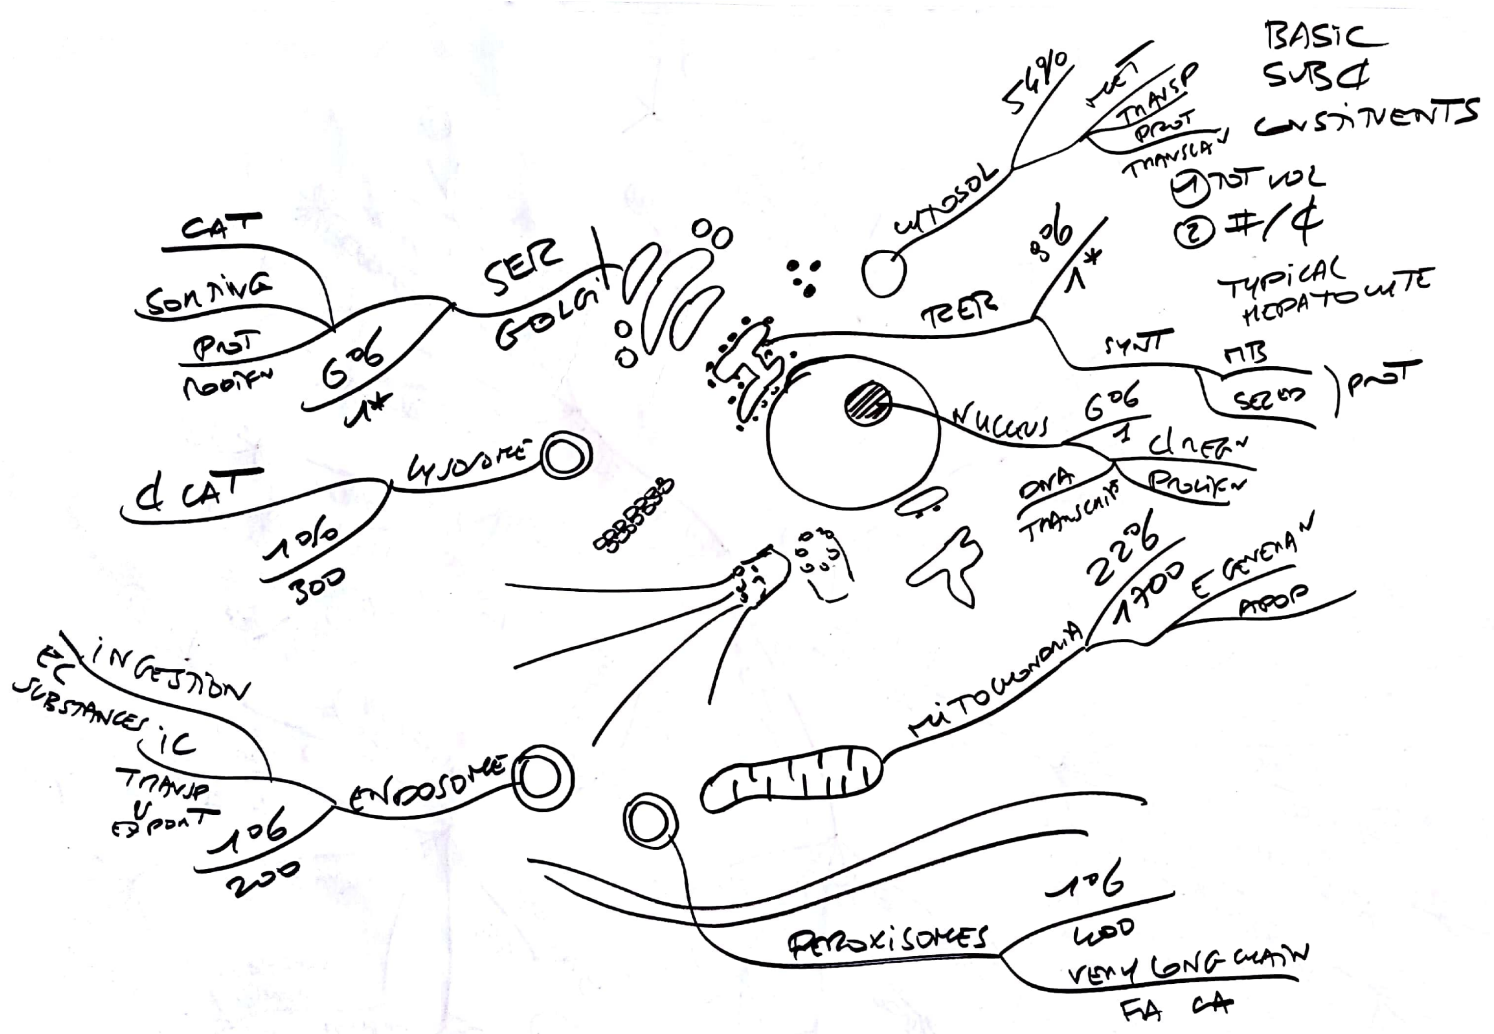 BASIC
SUB ₵
CONSTITUENTS
① TOT VOL
② #/₵
TYPICAL
HEPATOCYTE
CYTOSOL
54%
MET
TRANSP
PROT
TRANSLAN
RER
9%
1*
SYNT
MB
SECRED
PROT
NUCLEUS
6%
1
₵ REGN
PROLIFN
DNA
TRANSCRIP
MITOCHONDRIA
22%
1700
E GENERAN
APOP
PEROXISOMES
1%
400
VERY LONG CHAIN
FA
SER
GOLGI
CAT
SORTING
PROT
MODIFN
6%
1*
LYSOSOME
₵ CAT
1%
300
ENDOSOME
INGESTION
EC
SUBSTANCES
IC
TRANSP
EXPORT
1%
200